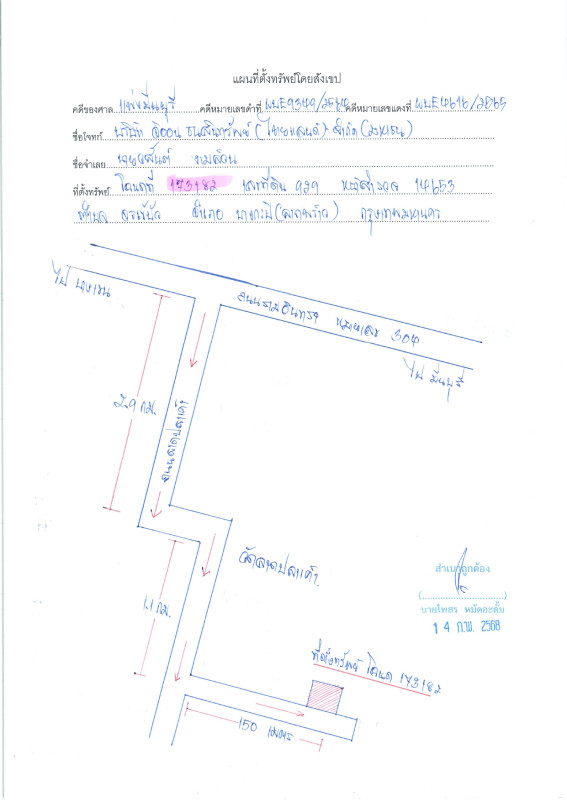 แผนที่ตั้งทรัพย์โดยสังเขป
คดีของศาล แพ่งมีนบุรี คดีหมายเลขดำที่ ผบE9349/2564 คดีหมายเลขแดงที่ ผบE4616/2565
ชื่อโจทก์ บริษัท อิออน ธนสินทรัพย์ (ไทยแลนด์) จำกัด (มหาชน)
ชื่อจำเลย
ที่ตั้งทรัพย์ โฉนดที่ 173182 เลขที่ดิน 929 หน้าสำรวจ 14653
ตำบล จรเข้บัว อำเภอ บางกะปิ (ลาดพร้าว) กรุงเทพมหานคร
ไป บางเขน
ถนนรามอินทรา หมายเลข 304
ไป มีนบุรี
2.9 กม.
ถนนลาดปลาเค้า
วัดลาดปลาเค้า
1.1 กม.
สำเนาถูกต้อง
(..............................)
นายไพสร หมัดอะดั้ม
14 ก.พ. 2568
ที่ตั้งทรัพย์ โฉนด 173182
150 เมตร